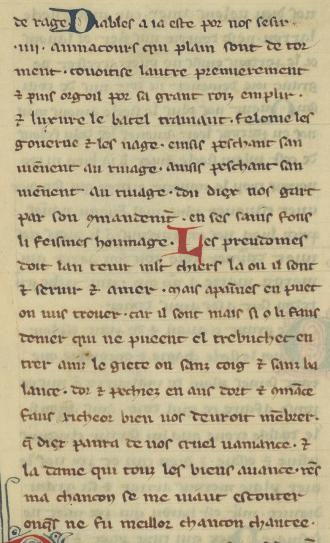 de rage Diables a ia este por nos sesir
·iiii· anmacours qui plain sont de tor
ment · couoitise lautre premierement
⁊ puis orgoil por sa grant roiz emplir ·
⁊ luxure le batel trainant · felonie les
gouerne ⁊ les nage · einsis peschant san
uienent au riuage · ainsis peschant san
uienent au riuage · don diex nos gart
par son · en ses sains fons
li feismes hommage · Les preudomes
doit lan tenir mlt chiers la ou il sont
⁊ seruir ⁊ amer · mais en puet
on uuis trouer · car il sont mais si o li faus
denier qui ne pueent el trebuchet en
trer ainz le giete on sanz coig ⁊ sanz ba
lance · dor ⁊ pechiez en aus dort ⁊
faus richeor bien uos deuroit mēbrer ·
q̄ diex panra de uos cruel uaniance · ⁊
la dame qui touz les biens auance ·
ma chancon se me uiaut escouter
onq̄s ne fu meillor chancon chantee ·